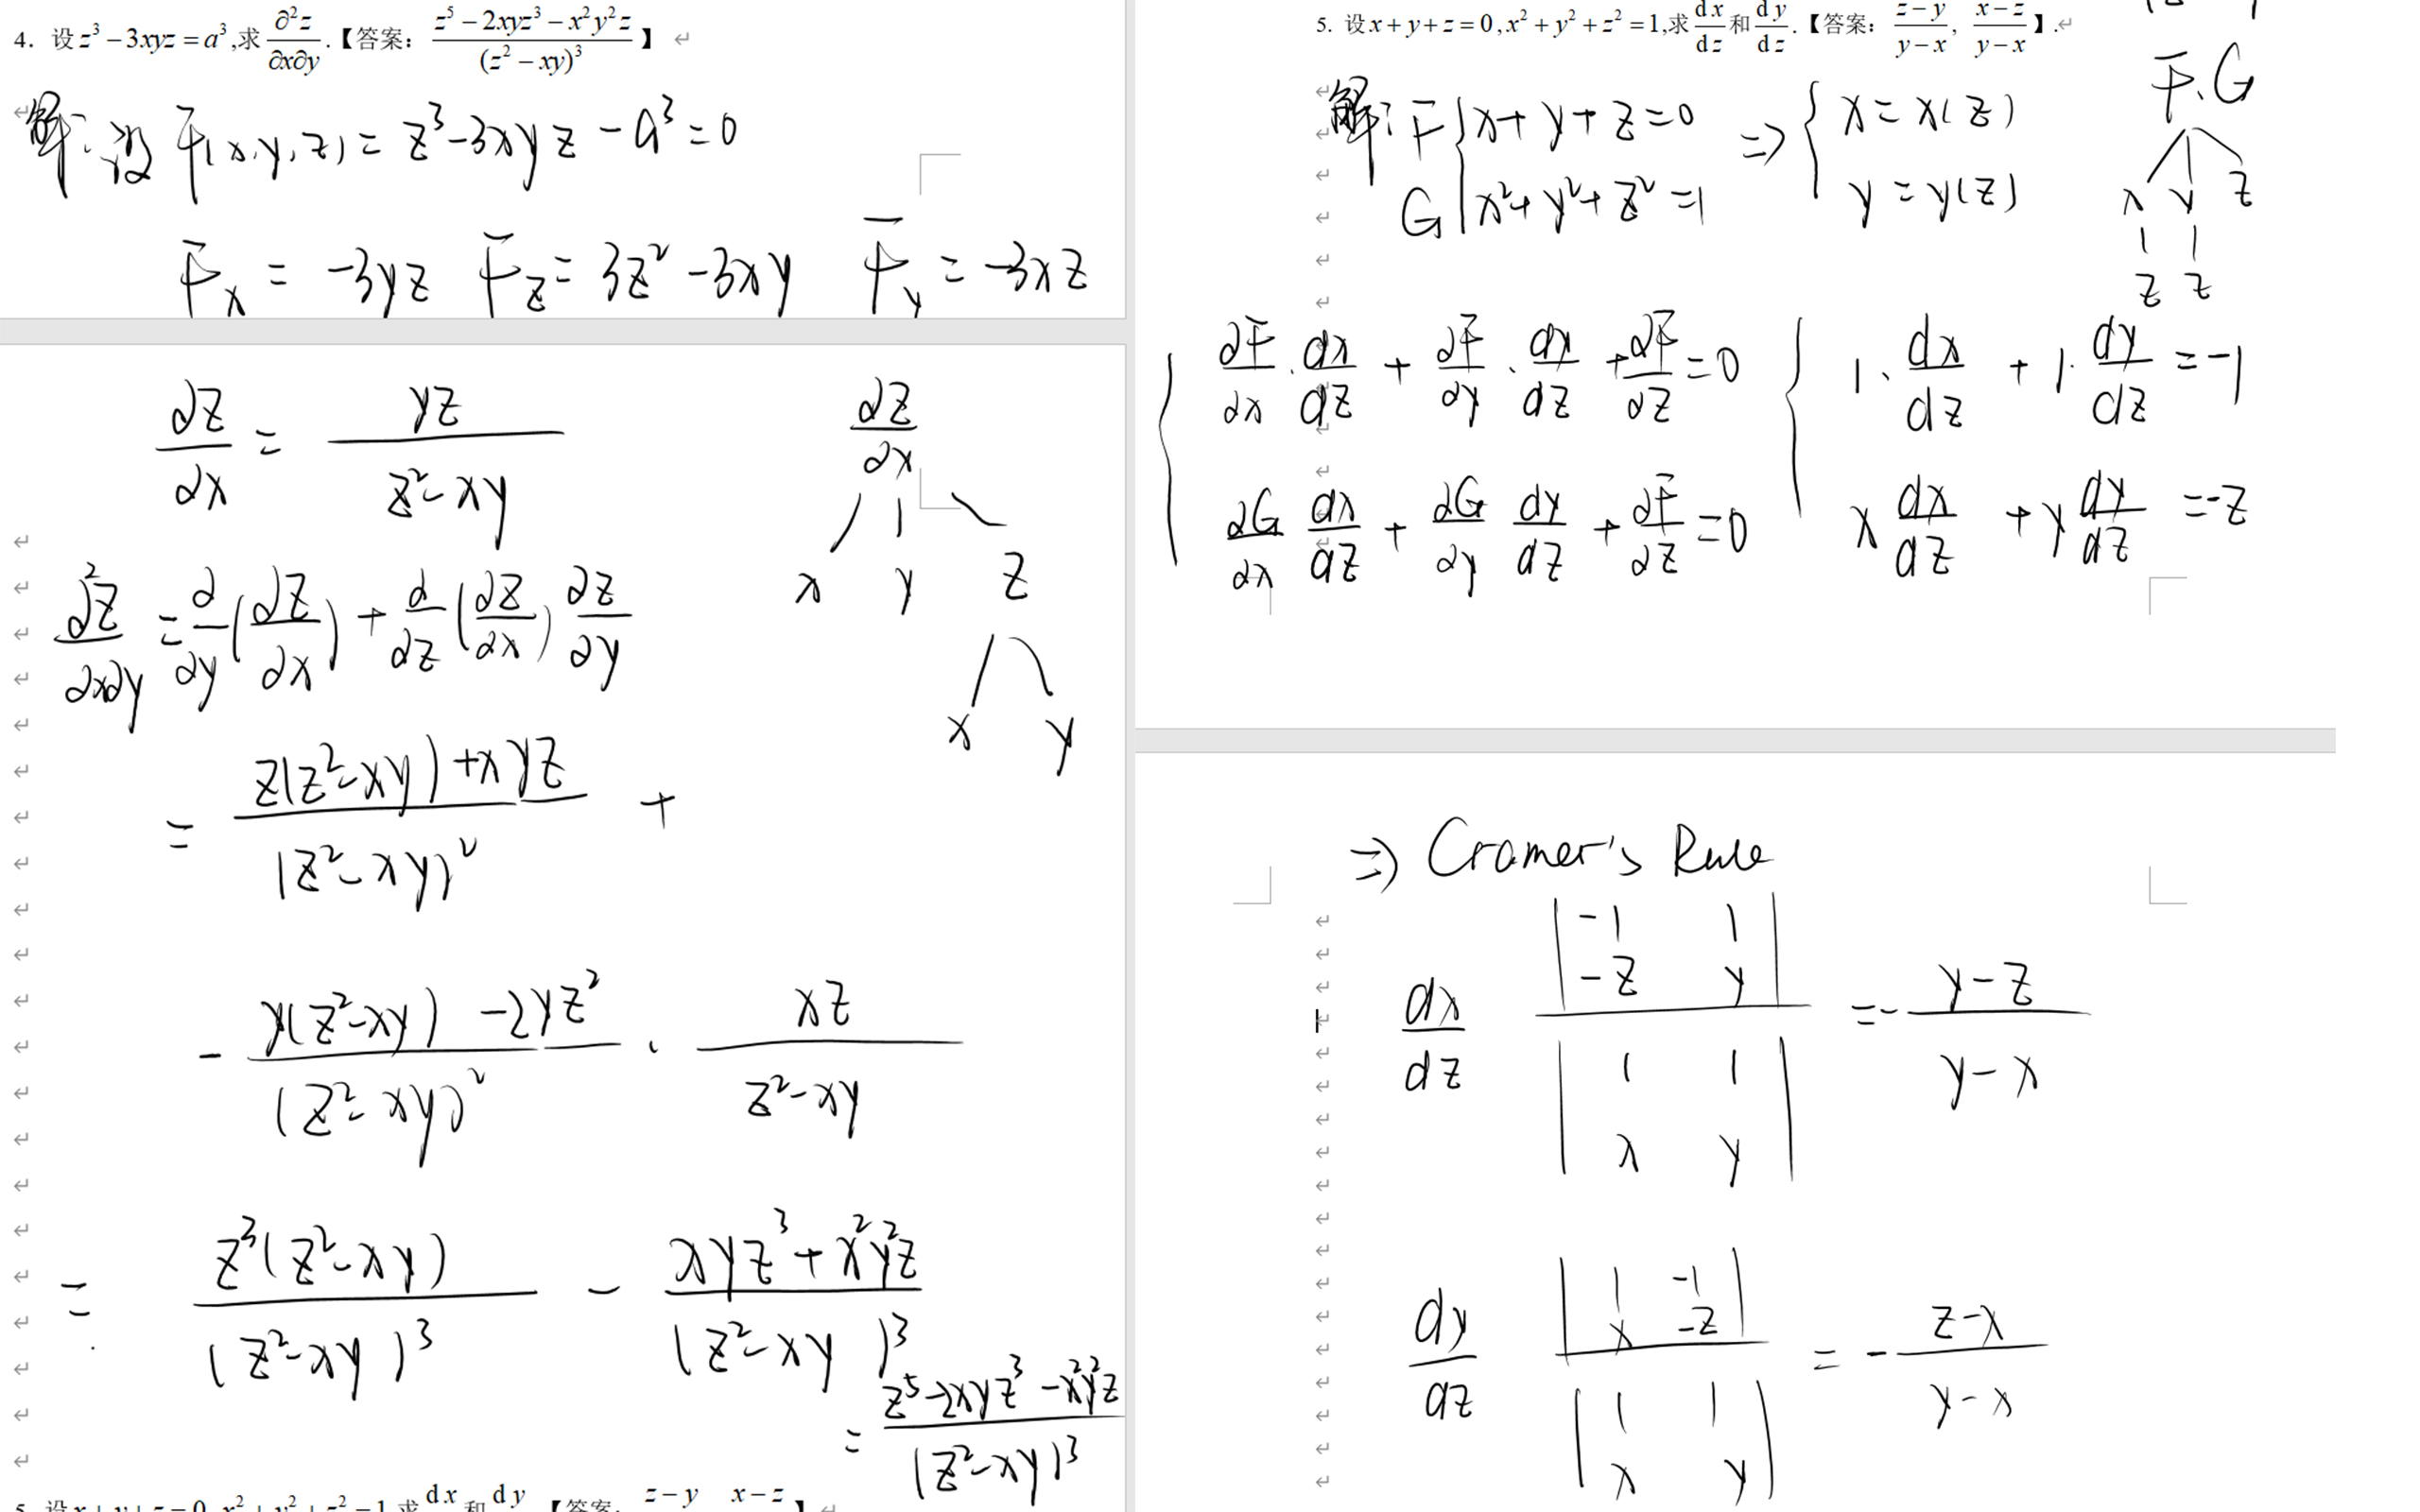 4. 设 z³ − 3xyz = a³,求 ∂²z/∂x∂y.【答案: (z⁵ − 2xyz³ − x²y²z)/(z² − xy)³】
解: 设 F(x,y,z) = z³ − 3xyz − a³ = 0
F_x = −3yz F_z = 3z² − 3xy F_y = −3xz
∂z/∂x = yz/(z² − xy)
∂z/∂x
x y z
x y
∂²z/∂x∂y = ∂/∂y (∂z/∂x) + ∂/∂z (∂z/∂x) ∂z/∂y
= (z(z² − xy) + xyz)/(z² − xy)² +
− (y(z² − xy) − 2yz²)/(z² − xy)² · xz/(z² − xy)
= z³(z² − xy)/(z² − xy)³ − (xyz³ + x²y²z)/(z² − xy)³
= (z⁵ − 2xyz³ − x²y²z)/(z² − xy)³
5. 设 x + y + z = 0, x² + y² + z² = 1,求 dx/dz 和 dy/dz.【答案: (z − y), (x − z)】
5. 设 x + y + z = 0, x² + y² + z² = 1,求 dx/dz 和 dy/dz.【答案: (z − y)/(y − x), (x − z)/(y − x)】.
解: F { x + y + z = 0 ⇒ { x = x(z)
G { x² + y² + z² = 1 y = y(z)
F. G
x y z
z z
{ ∂F/∂x · dx/dz + ∂F/∂y · dy/dz + ∂F/∂z = 0 { 1· dx/dz + 1· dy/dz = −1
∂G/∂x dx/dz + ∂G/∂y dy/dz + ∂F/∂z = 0 x dx/dz + y dy/dz = −z
⇒ Cramer's Rule
dx/dz |−1 1; −z y| / |1 1; x y| = − (y − z)/(y − x)
dy/dz |1 −1; x −z| / |1 1; x y| = − (z − x)/(y − x)